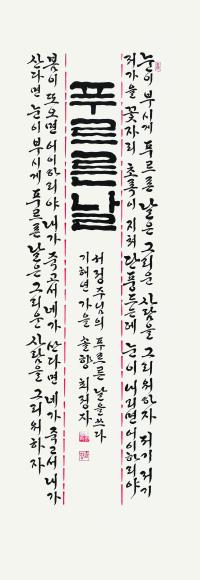 눈이 부시게 푸르른 날은 그리운 사람을 그리워하자 저기 저기
저 가을 꽃자리 초록이 지쳐 단풍드는데 눈이 내리면 어이하리야
푸르른날
서정주님의 푸르른 날을 쓰다
기해년 가을 솔향 최정자
봄이 또 오면 어이하리야 내가 죽고서 네가 산다면 네가 죽고서 내가
산다면 눈이 부시게 푸르른 날은 그리운 사람을 그리워하자